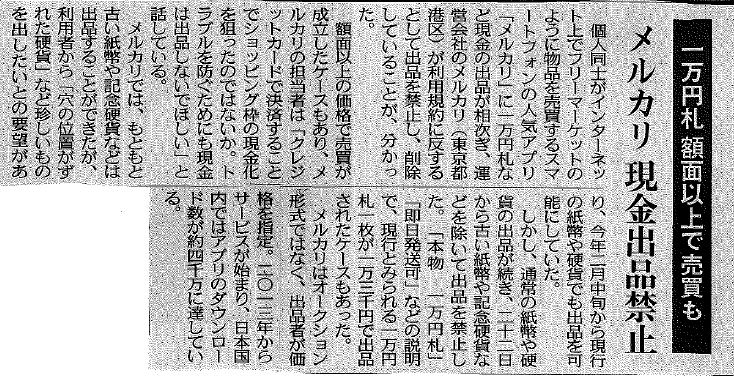 一万円札 額面以上で売買も
メルカリ 現金出品禁止
個人同士がインターネッ
ト上でフリーマーケットの
ように物品を売買するスマ
ートフォンの人気アプリ
「メルカリ」に一万円札な
ど現金の出品が相次ぎ、運
営会社のメルカリ（東京都
港区）が利用規約に反する
として出品を禁止し、削除
していることが、分かっ
た。
額面以上の価格で売買が
成立したケースもあり、メ
ルカリの担当者は「クレジ
ットカードで決済すること
でショッピング枠の現金化
を狙ったのではないか。ト
ラブルを防ぐためにも現金
は出品しないでほしい」と
話している。
メルカリでは、もともと
古い紙幣や記念硬貨などは
出品することができたが、
利用者から「穴の位置がず
れた硬貨」など珍しいもの
を出したいとの要望があ
り、今年二月中旬から現行
の紙幣や硬貨でも出品を可
能にしていた。
しかし、通常の紙幣や硬
貨の出品が続き、二十二日
から古い紙幣や記念硬貨な
どを除いて出品を禁止し
た。「本物 一万円札」
「即日発送可」などの説明
で、現行とみられる一万円
札一枚が一万三千円で出品
されたケースもあった。
メルカリはオークション
形式ではなく、出品者が価
格を指定。二〇一三年から
サービスが始まり、日本国
内ではアプリのダウンロー
ド数が約四千万に達してい
る。